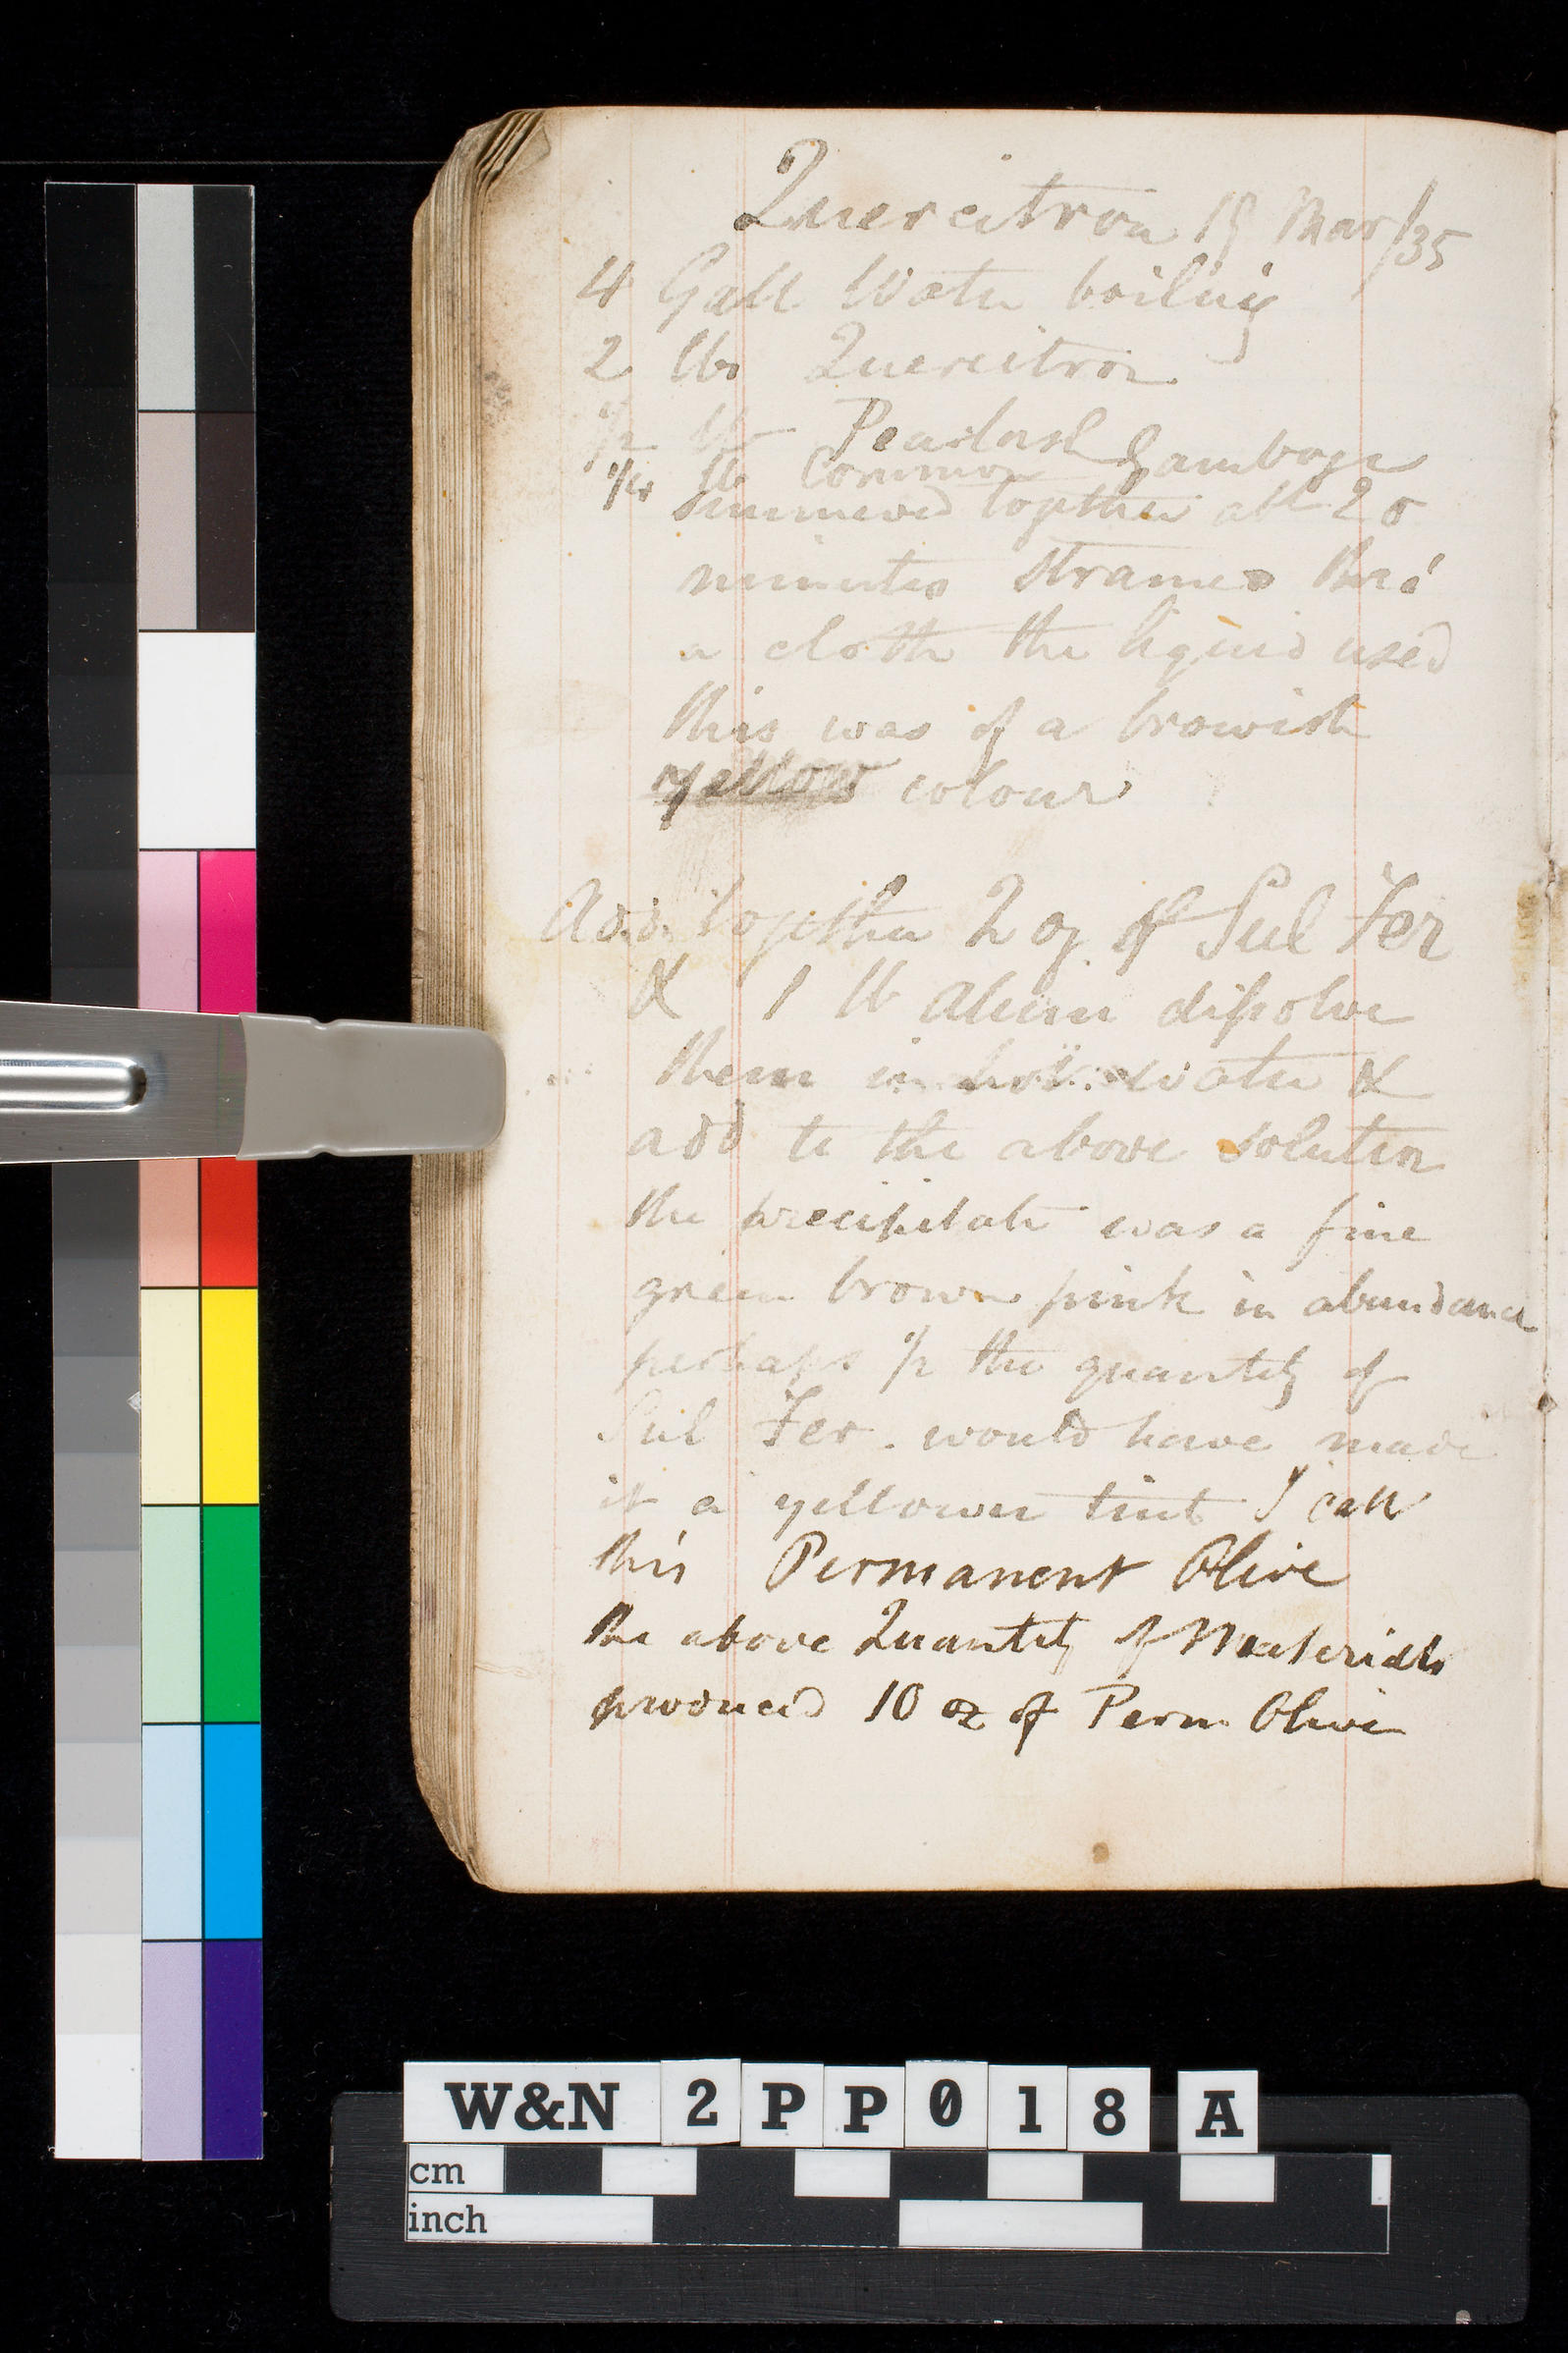 Quercitron 19 Mar/35
4 Gall Water boiling
2 lbs Quercitron
1/2 lb Pearlash
1/4 lb Common Gamboge
Simmered together abt 20
minutes strained thro'
a cloth the liquid used
this was of a browish
yellow colour
Add together 2 oz of Sul Fer
& 1 lb Alum dissolve
them in hot water &
add to the above solution
the precipitate was a fine
green brown pink in abundance
perhaps 1/2 the quantity of
Sul Fer. would have made
it a yellower tint I call
this Permanent Olive
the above Quantity of Materials
produced 10 oz of Perm Olive
W&N 2PP018 A
cm
inch